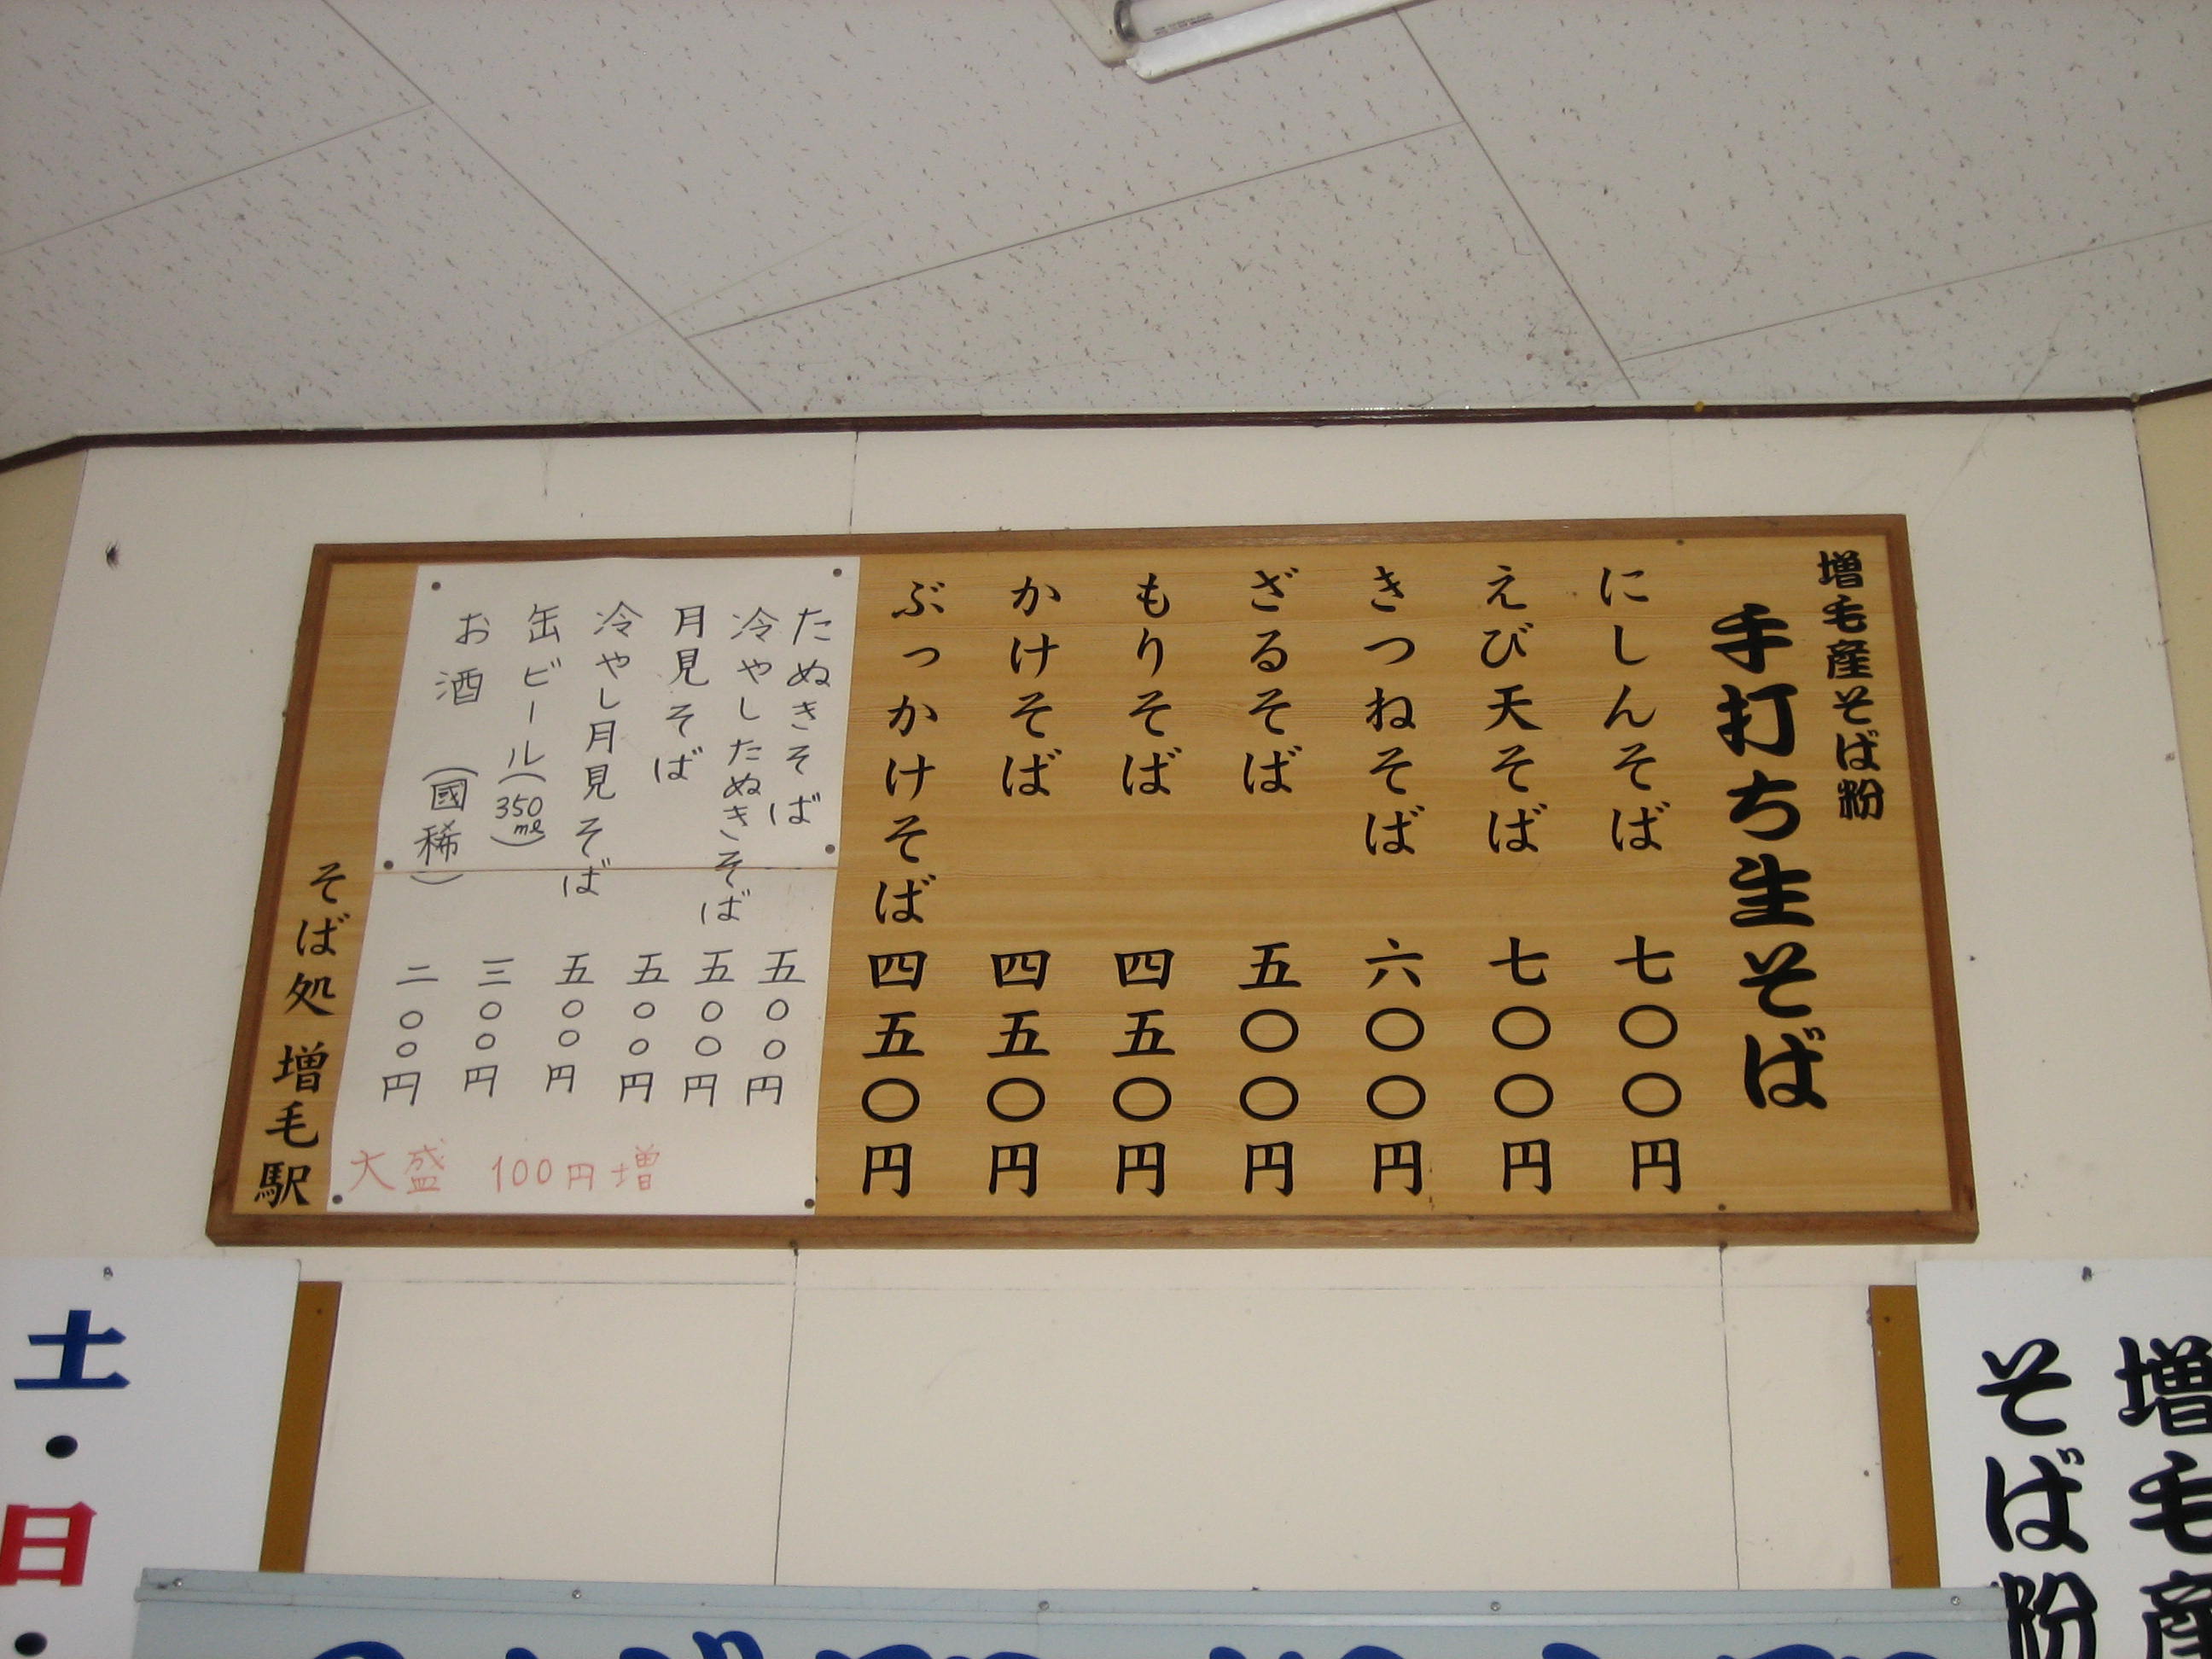 増毛産そば粉
手打ち生そば
にしんそば 七〇〇円
えび天そば 七〇〇円
きつねそば 六〇〇円
ざるそば 五〇〇円
もりそば 四五〇円
かけそば 四五〇円
ぶっかけそば 四五〇円
たぬきそば 五〇〇円
冷やしたぬきそば 五〇〇円
月見そば 五〇〇円
冷やし月見そば 五〇〇円
缶ビール(350ml) 三〇〇円
お酒 (國稀) 二〇〇円
大盛 100円増
そば処 増毛駅
増毛産
そば粉
土・日・